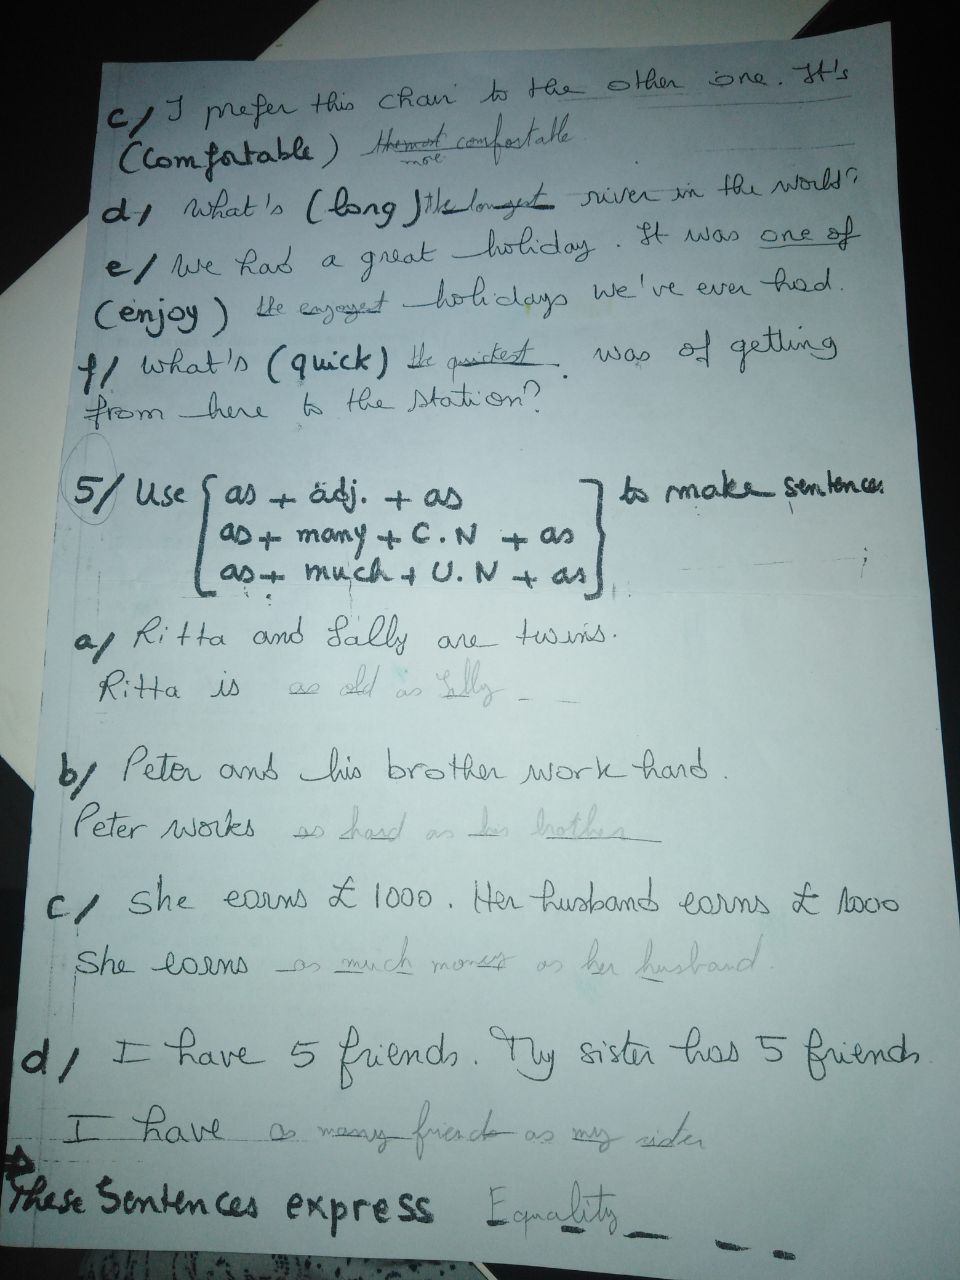 c/ I prefer this chair to the other one. It's
(comfortable) the most comfortable
more
d/ What's (long) the longest river in the world?
e/ We had a great holiday. It was one of
(enjoy) the enjoyest holidays we've ever had.
f/ What's (quick) the quickest was of getting
from here to the station?
5/ Use as + adj. + as to make sentences
as + many + C.N + as
as + much + U.N + as
a/ Ritta and Sally are twins.
Ritta is as old as Sally
b/ Peter and his brother work hard.
Peter works as hard as his brother
c/ She earns £ 1000. Her husband earns £ 1000
She earns as much money as her husband.
d/ I have 5 friends. My sister has 5 friends
I have as many friends as my sister
These Sentences express Equality